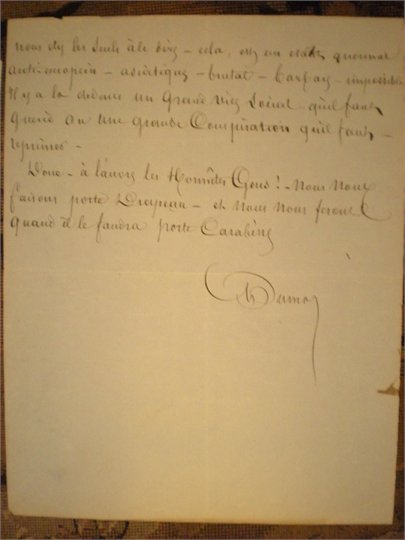 nous
anti-européen - asiatique - brutal - barbare - impossible
Il y a là dedans un Grand Vice Social qu'il faut
guérir ou une grande Conspiration qu'il faut -
réprimer -
Donc - à l'œuvre les Honnêtes Gens ! - Nous Nous
faisons porte Drapeau - et Nous Nous ferons
quand il le faudra porte Carabine